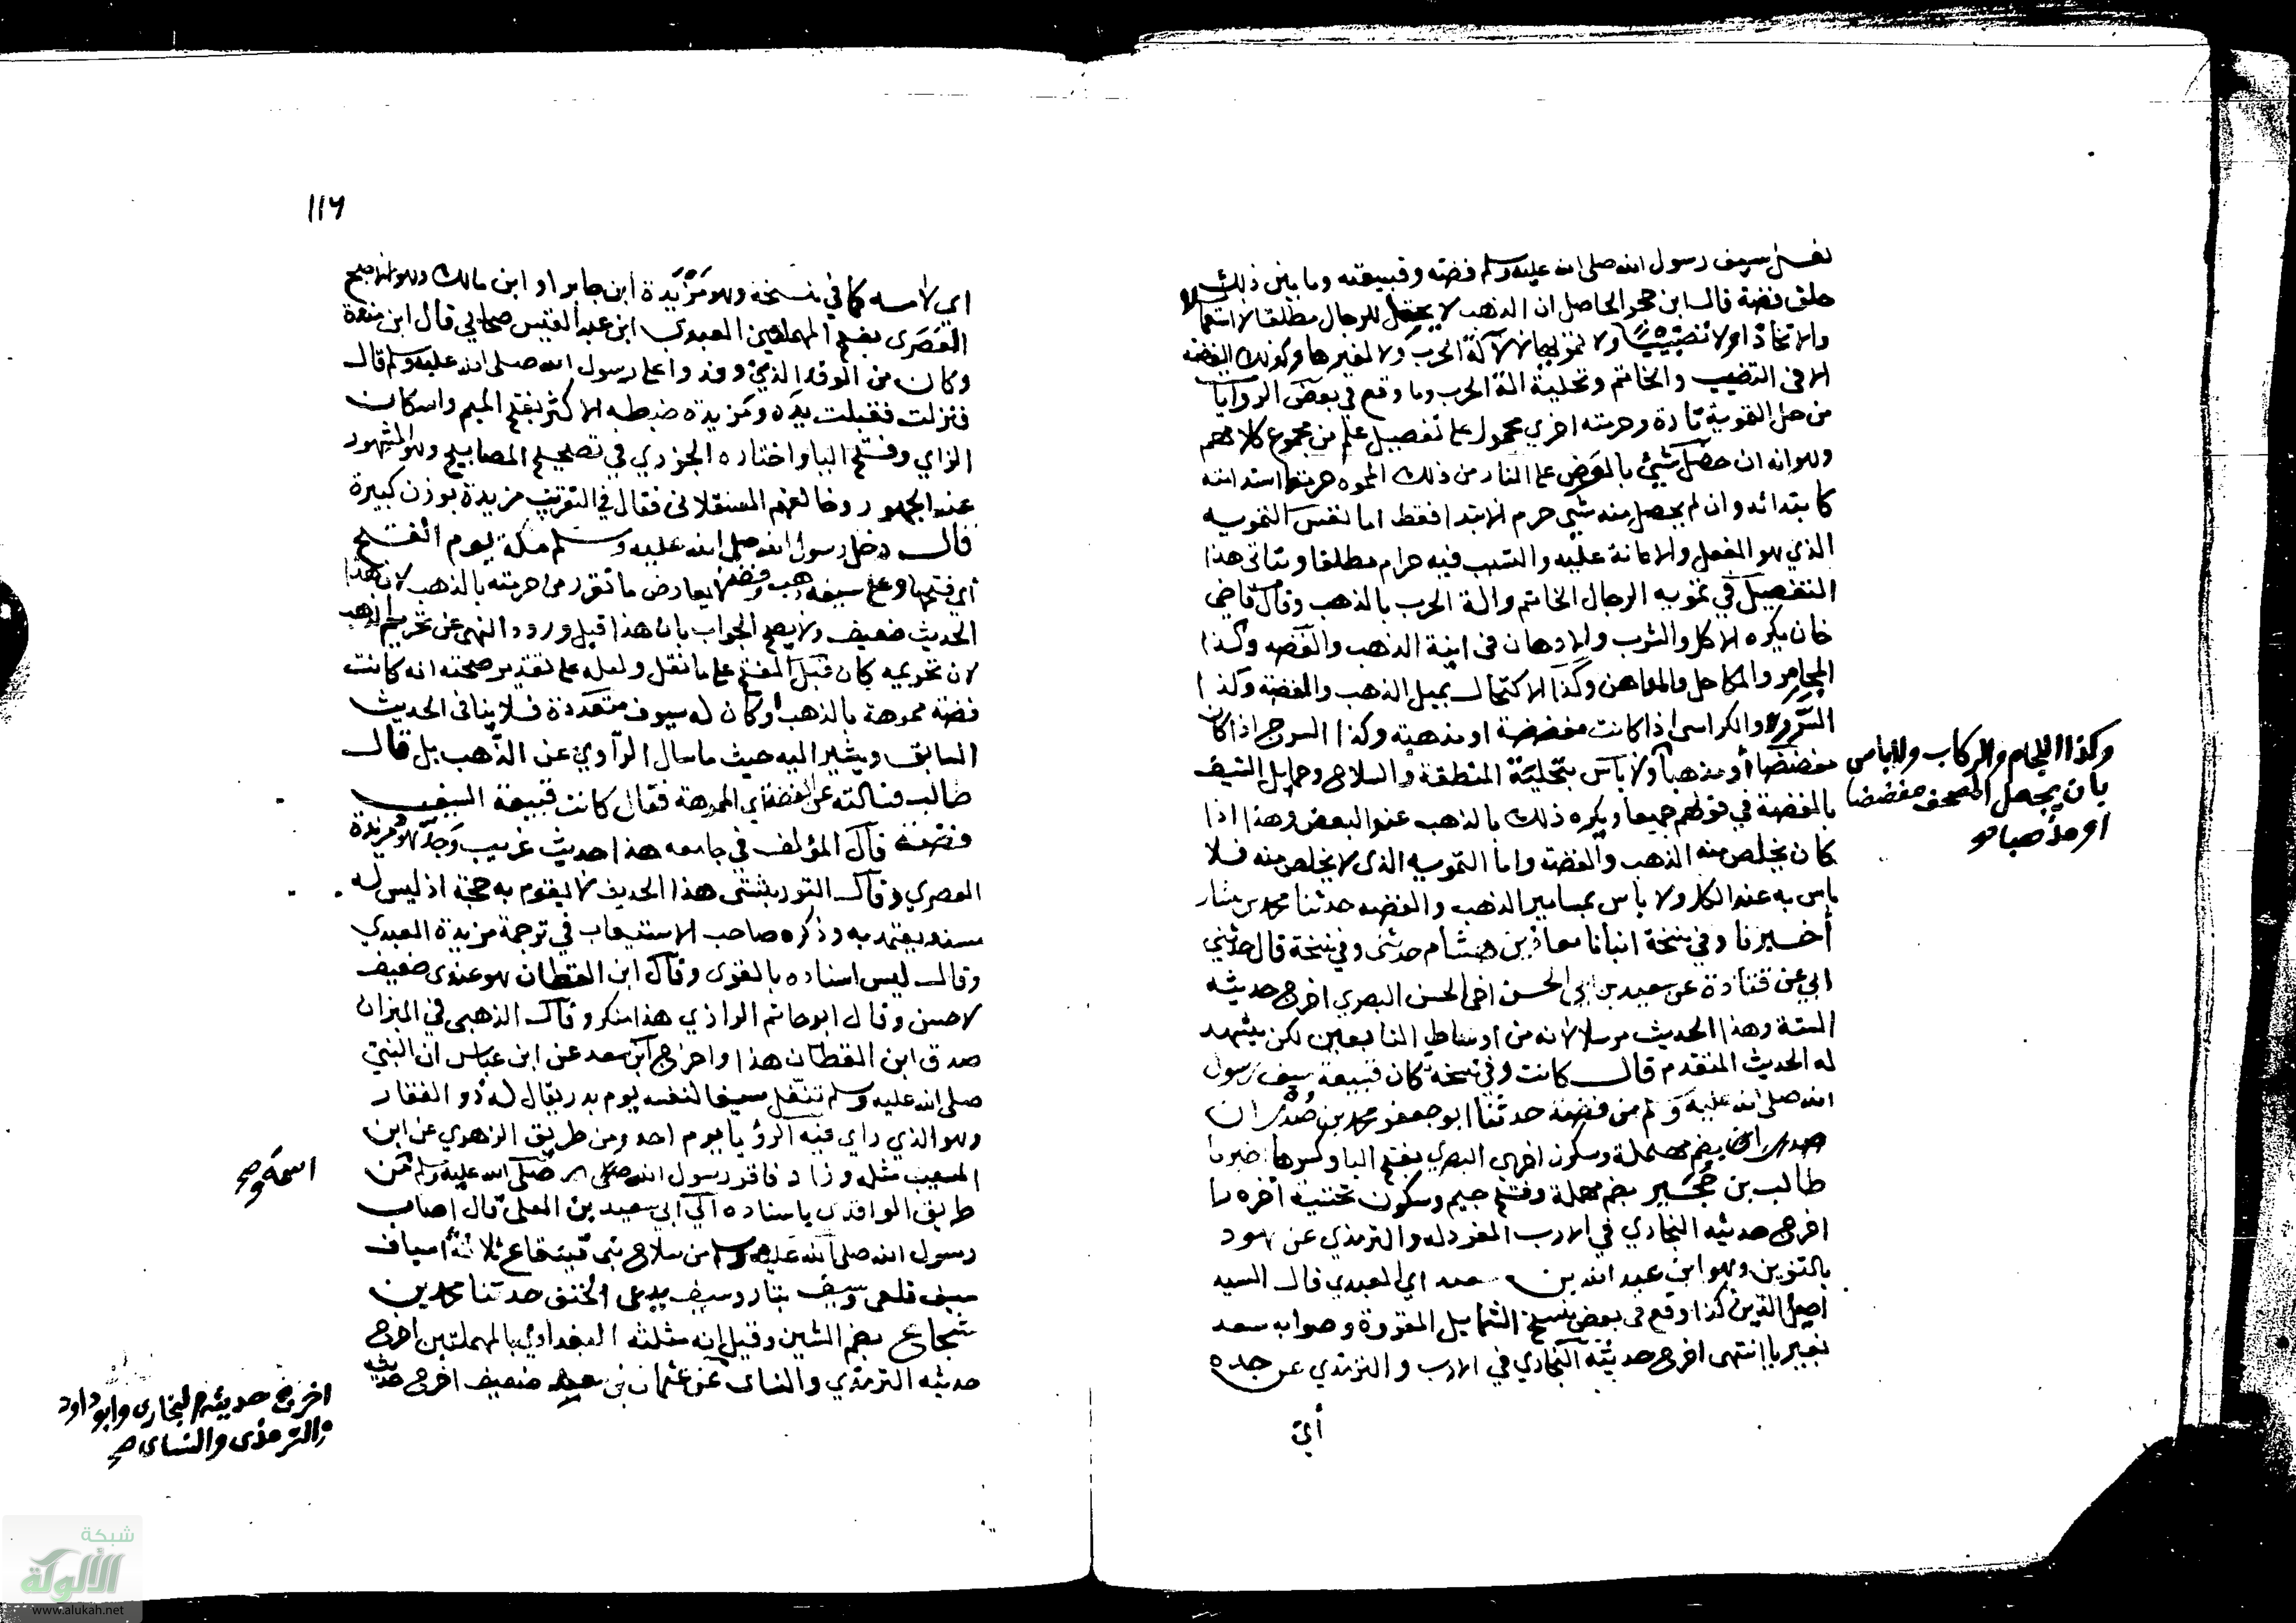 نعل سيف رسول الله صلى الله عليه وسلم فضة وقبيعته وما بين ذلك
حلق فضة قال ابن حجر الحاصل ان الذهب لا يحل للرجال مطلقا لا استعمالا
ولا اتخاذا ولا تضبيبا ولا تمويها لا لآلة الحرب ولا لغيرها وكذلك الفضة
الا في التضبيب والخاتم وتحلية الة الحرب وما وقع في بعض الروايات
من حل التمويه تارة وحرمته اخرى محمول على تفصيل علم من مجموع كلامهم
وهو انه ان حصل شيئ بالعرض على النار من ذلك المموه حرمت استدامته
كابتدائه وان لم يحصل منه شيئ حرم الابتدا فقط اما نفس التمويه
الذي هو الفعل والاعانة عليه والتسبب فيه حرام مطلقا ويتاتى هذا
التفصيل في تمويه الرجال الخاتم والة الحرب بالذهب وقال قاضي
خان يكره الاكل والشرب والادهان في انية الذهب والفضة وكذا
المجامر والمكاحل والمداهن وكذا الاكتحال بميل الذهب والفضة وكذا
السرر والكراسى اذا كانت مفضضة او مذهبة وكذا السرج اذا كان
مفضضا أو مذهبا ولا بأس بتحلية المنطقة والسلاح وحمايل السيف
بالفضة في قولهم جميعا ويكره ذلك بالذهب عند البعض وهذا اذا
كان يخلص منه الذهب والفضة واما التمويه الذى لا يخلص منه فلا
باس به عند الكل ولا باس بمسامير الذهب والفضه حدثنا محمد بن بشار
أخبرنا وفي نسخة انبانا معاذ بن هشام حدثنى وفي نسخة قال حدثني
ابي عن قتادة عن سعيد بن ابي الحسن اخى الحسن البصري اخرج حديثه
الستة وهذا الحديث مرسل لانه من اوساط التابعين لكن يشهد
له الحديث المتقدم قال كانت وفي نسخة كان قبيعة سيف رسول
الله صلى الله عليه وسلم من فضة حدثنا ابو جعفر محمد بن صدران
بضم مهملة وسكون اخرى البصري بفتح البا وكسرها اخبرنا
طالب بن حجير بضم مهملة وفتح جيم وسكون تحتية اخره را
اخرج حديثه البخاري في الادب المفرد له والترمذي عن هود
بالتنوين وهو ابن عبد الله بن سعيد اي العبدي قال السيد
اصيل الدين كذا وقع في بعض نسخ الشمايل المقروة وصوابه سعد
بغير يا انتهى اخرج حديثه البخاري في الادب والترمذي عن جده
أي
وكذا اللجام والركاب ولا باس
بان يجعل المصحف مفضضا
او مذهبا
١١٦
اي لامه كما في نسخة وهو مَزْيَدة ابن جابر او ابن مالك وهو اصح
العَصَرى بفتح المهملتين العبدى ابن عبد القيس صحابي قال ابن مندة
وكان من الوفد الذين وفدوا على رسول الله صلى الله عليه وسلم قال
فنزلت فقبلت يده ومزيدة ضبطه الاكثر بفتح الميم واسكان
الزاي وفتح اليا واختاره الجزري في تصحيح المصابيح وهو المشهور
عند الجمهور وخالفهم العسقلانى فقال في التقريب مزيدة بوزن كبيرة
قال دخل رسول الله صلى الله عليه وسلم مكة يوم الفتح
أي فتحها وعلى سيفه ذهب وفضة لا يعارض ما تقرر من حرمته بالذهب لان هذا
الحديث ضعيف ولا يصح الجواب بان هذا قبل ورود النهى عن تحريم الذهب
لان تحريمه كان قبل الفتح على ما نقل ولعله على تقدير صحته انه كانت
فضة مموهة بالذهب او كان له سيوف متعددة فلا ينافى الحديث
السابق ويشير اليه حيث ما سال الراوي عن الذهب بل قال
طالب فسالته عن الفضة اي المموهة فقال كانت قبيعة السيف
فضة قال المؤلف في جامعه هذا حديث غريب وجد هود مزيدة
العصري وقال التوربشتى هذا الحديث لا يقوم به حجة اذ ليس له
سند يعتمد به وذكره صاحب الاستيعاب في ترجمة مزيدة العبدي
وقال ليس اسناده بالقوى وقال ابن القطان هو عندى ضعيف
لا حسن وقال ابو حاتم الرازي هذا منكر وقال الذهبي في الميزان
صدق ابن القطان هذا واخرج ابن سعد عن ابن عباس ان النبي
صلى الله عليه وسلم تنفل سيفا لنفسه يوم بدر يقال له ذو الفقار
وهو الذي راى فيه الرؤيا يوم احد ومن طريق الزهري عن ابن
المسيب مثله وزاد فاقر رسول الله صلى الله عليه وسلم ومن
طريق الواقدى باسناده الى ابي سعيد بن المعلى قال اصاب
رسول الله صلى الله عليه وسلم من سلاح بنى قينقاع ثلاثة أسياف
سيف قلعى وسيف بتار وسيف يدعى الحتف حدثنا محمد بن
شجاع بضم الشين وقيل انه مثلثه البغدادي بالمهملتين اخرج
حديثه الترمذي والنساى عن عثمان بن سعد ضعيف اخرج حديثه
اسمه صح
اخرج حديثه البخارى وابو داود
والترمذى والنساى صح
شبكة
الألوكة
www.alukah.net